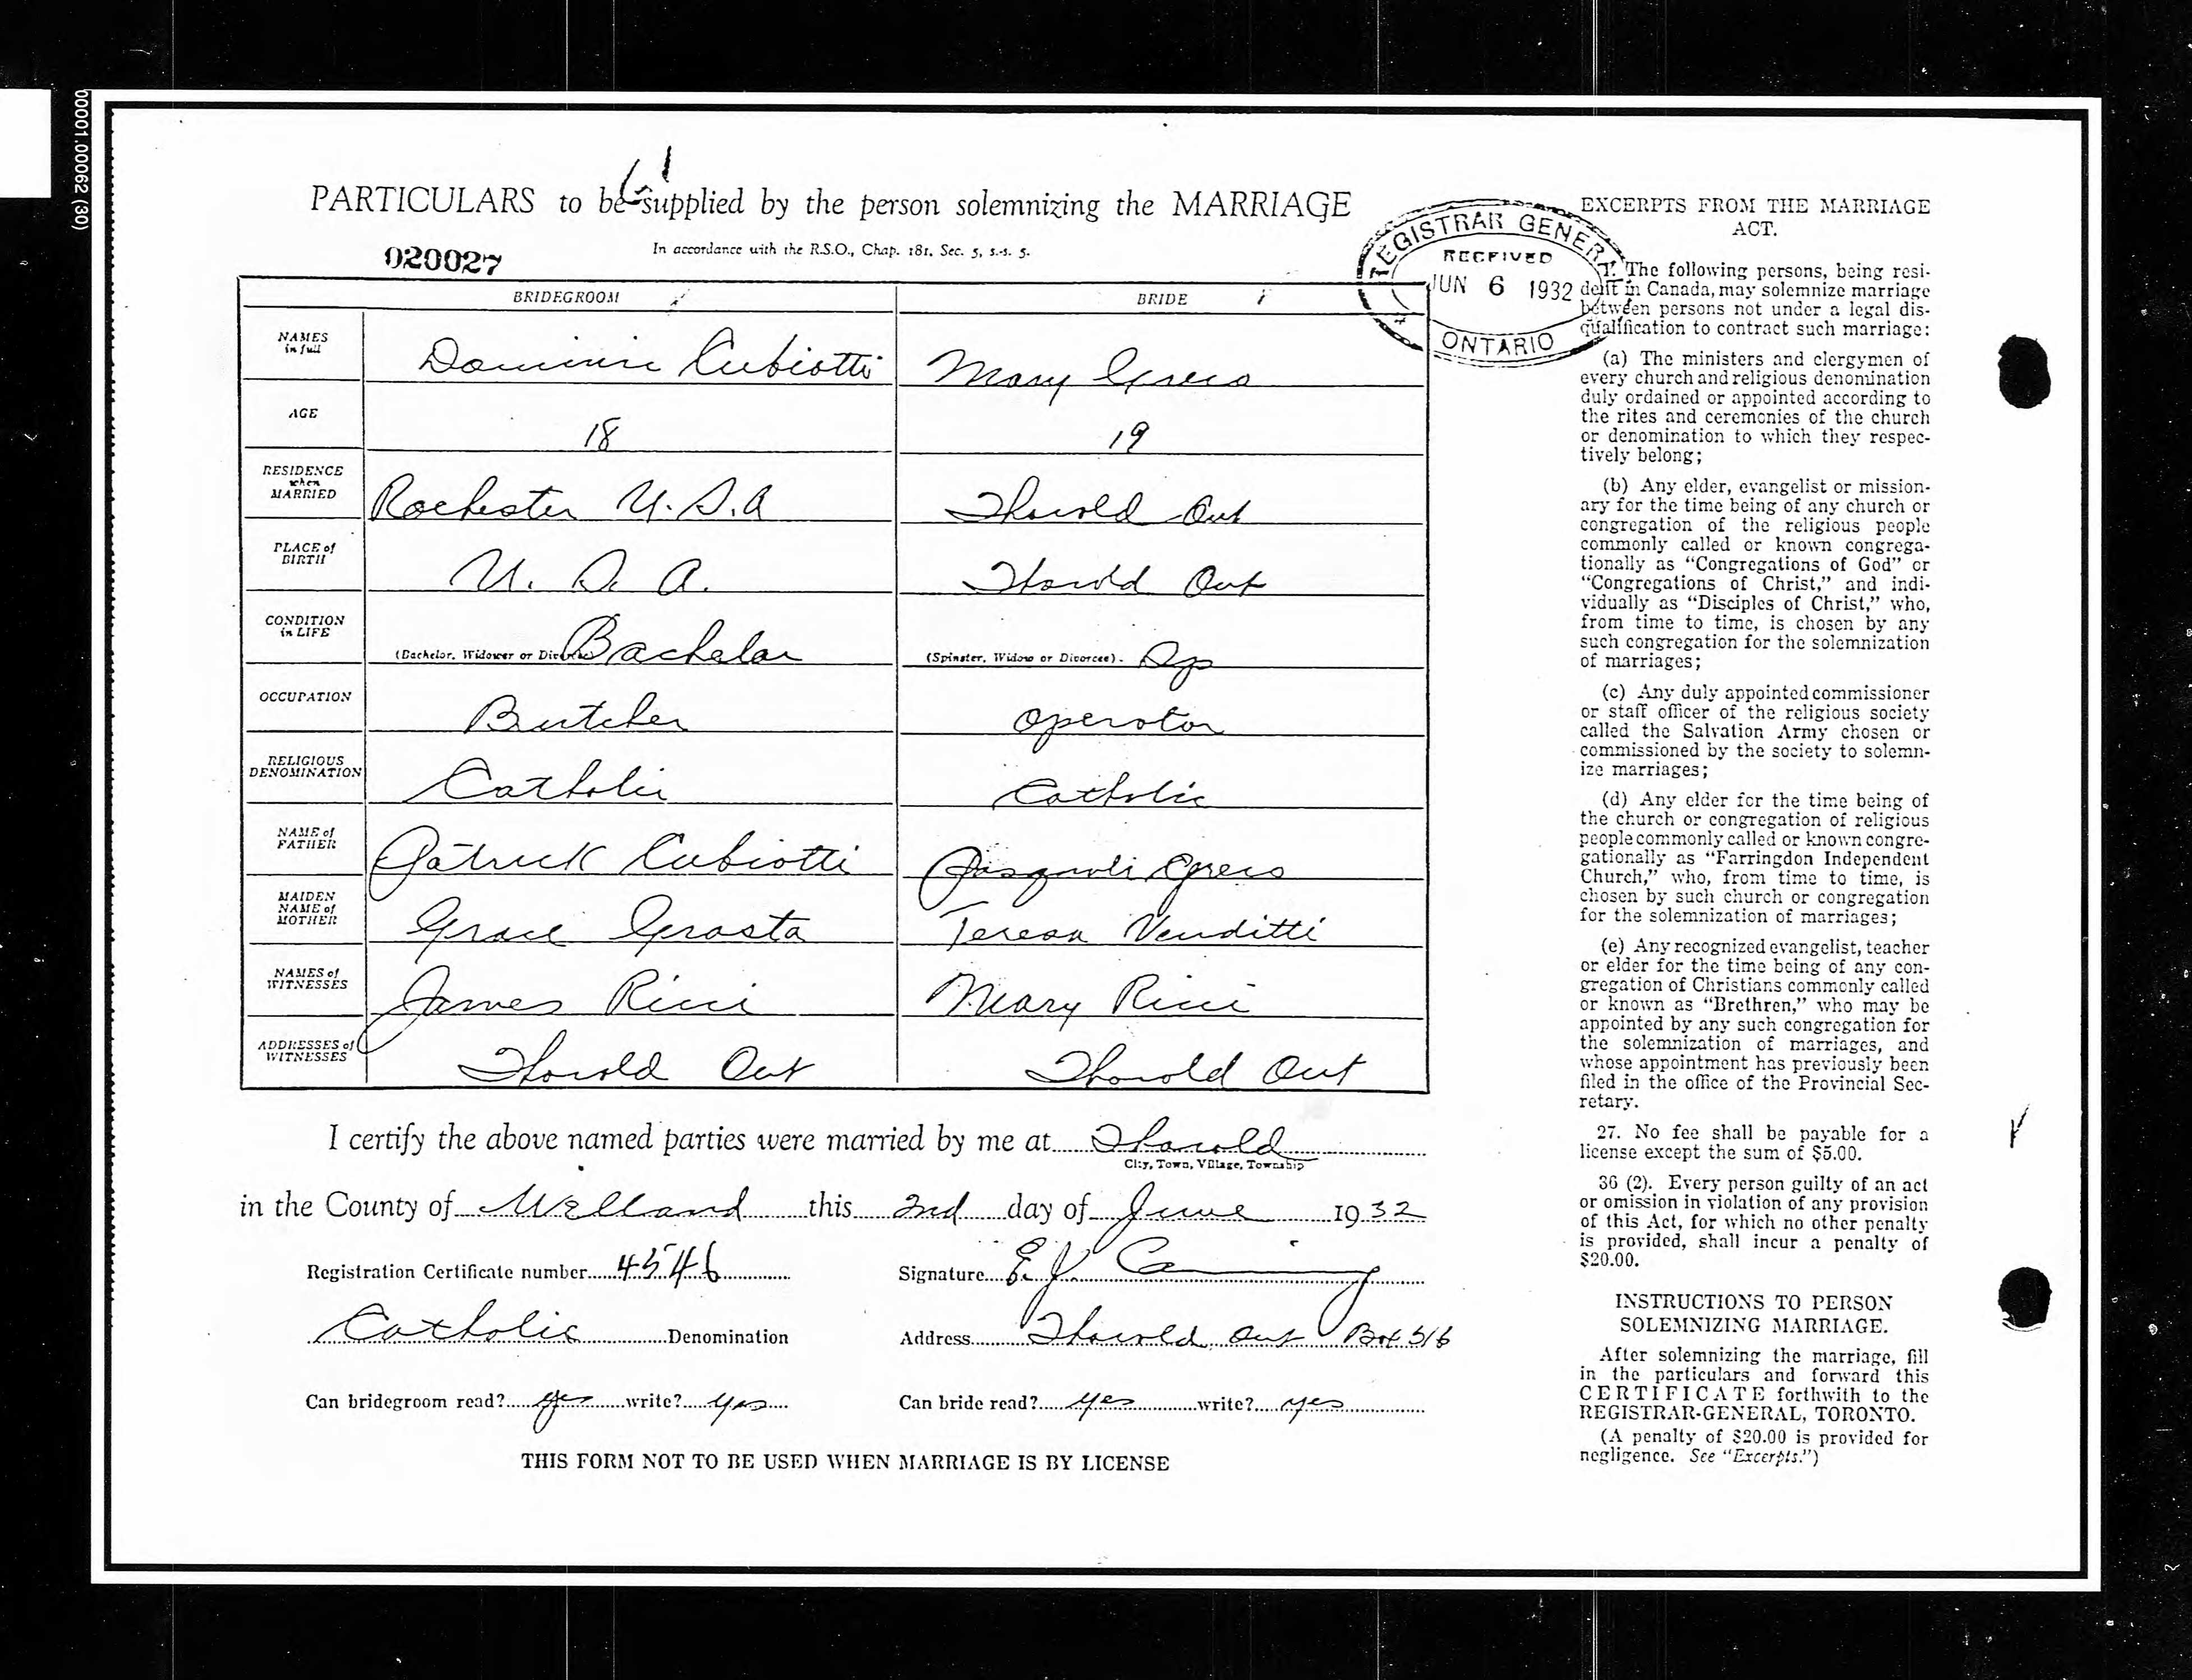 00001.00062 (30)
PARTICULARS to be supplied by the person solemnizing the MARRIAGE
In accordance with the R.S.O., Chap. 181, Sec. 5, s.-s. 5.
020027
REGISTRAR GENERAL
RECEIVED
JUN 6 1932
ONTARIO
BRIDEGROOM BRIDE
NAMES in full Dominic Cubiotti Mary Greco
AGE 18 19
RESIDENCE when MARRIED Rochester U.S.A Thorold Ont
PLACE of BIRTH U.S.A. Thorold Ont
CONDITION in LIFE (Bachelor, Widower or Divorcee) Bachelor (Spinster, Widow or Divorcee). Sp
OCCUPATION Butcher operator
RELIGIOUS DENOMINATION Catholic Catholic
NAME of FATHER Patrick Cubiotti Pasquali Greco
MAIDEN NAME of MOTHER Grace Grasta Teresa Venditti
NAMES of WITNESSES James Ricci Mary Ricci
ADDRESSES of WITNESSES Thorold Ont Thorold Ont
I certify the above named parties were married by me at Thorold
City, Town, Village, Township
in the County of Welland this 2nd day of June 1932
Registration Certificate number 4546 Signature E. J.
Catholic Denomination Address Thorold Ont Box 516
Can bridegroom read? yes write? yes Can bride read? yes write? yes
THIS FORM NOT TO BE USED WHEN MARRIAGE IS BY LICENSE
EXCERPTS FROM THE MARRIAGE
ACT.
1. The following persons, being resi-
dent in Canada, may solemnize marriage
between persons not under a legal dis-
qualification to contract such marriage:
(a) The ministers and clergymen of
every church and religious denomination
duly ordained or appointed according to
the rites and ceremonies of the church
or denomination to which they respec-
tively belong;
(b) Any elder, evangelist or mission-
ary for the time being of any church or
congregation of the religious people
commonly called or known congrega-
tionally as "Congregations of God" or
"Congregations of Christ," and indi-
vidually as "Disciples of Christ," who,
from time to time, is chosen by any
such congregation for the solemnization
of marriages;
(c) Any duly appointed commissioner
or staff officer of the religious society
called the Salvation Army chosen or
commissioned by the society to solemn-
ize marriages;
(d) Any elder for the time being of
the church or congregation of religious
people commonly called or known congre-
gationally as "Farringdon Independent
Church," who, from time to time, is
chosen by such church or congregation
for the solemnization of marriages;
(e) Any recognized evangelist, teacher
or elder for the time being of any con-
gregation of Christians commonly called
or known as "Brethren," who may be
appointed by any such congregation for
the solemnization of marriages, and
whose appointment has previously been
filed in the office of the Provincial Sec-
retary.
27. No fee shall be payable for a
license except the sum of $5.00.
36 (2). Every person guilty of an act
or omission in violation of any provision
of this Act, for which no other penalty
is provided, shall incur a penalty of
$20.00.
INSTRUCTIONS TO PERSON
SOLEMNIZING MARRIAGE.
After solemnizing the marriage, fill
in the particulars and forward this
CERTIFICATE forthwith to the
REGISTRAR-GENERAL, TORONTO.
(A penalty of $20.00 is provided for
negligence. See "Excerpts.")